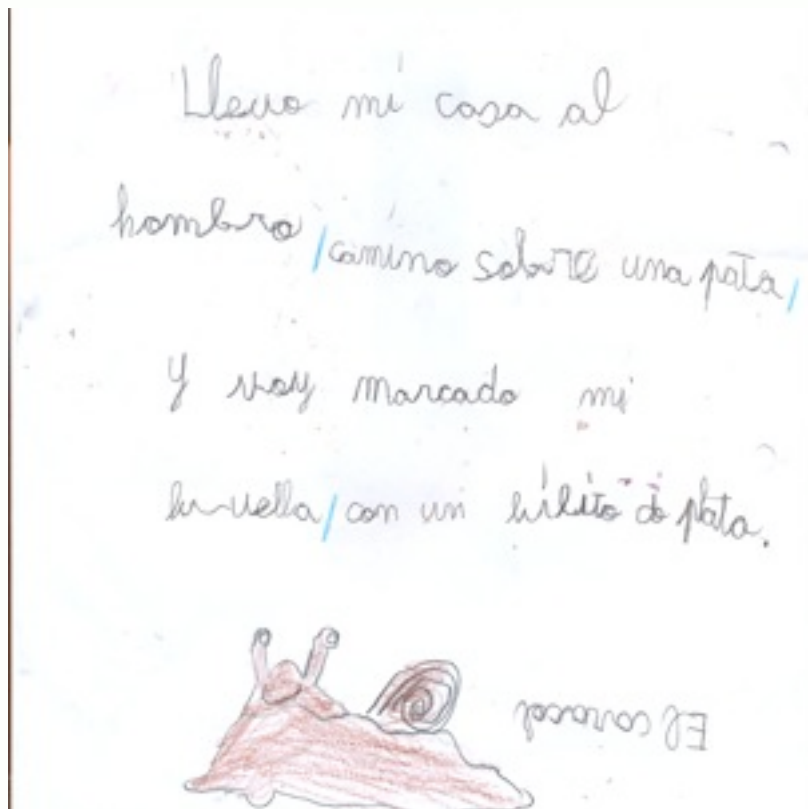 Llevo mi casa al
hombro / camino sobre una pata /
y voy marcado mi
huella / con un hilito de plata.
El caracol